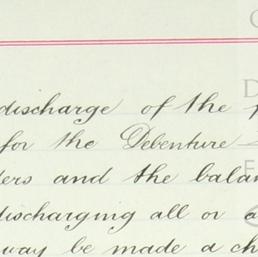 discharge of the
for the Debenture
and the
discharging all or a
may be made a